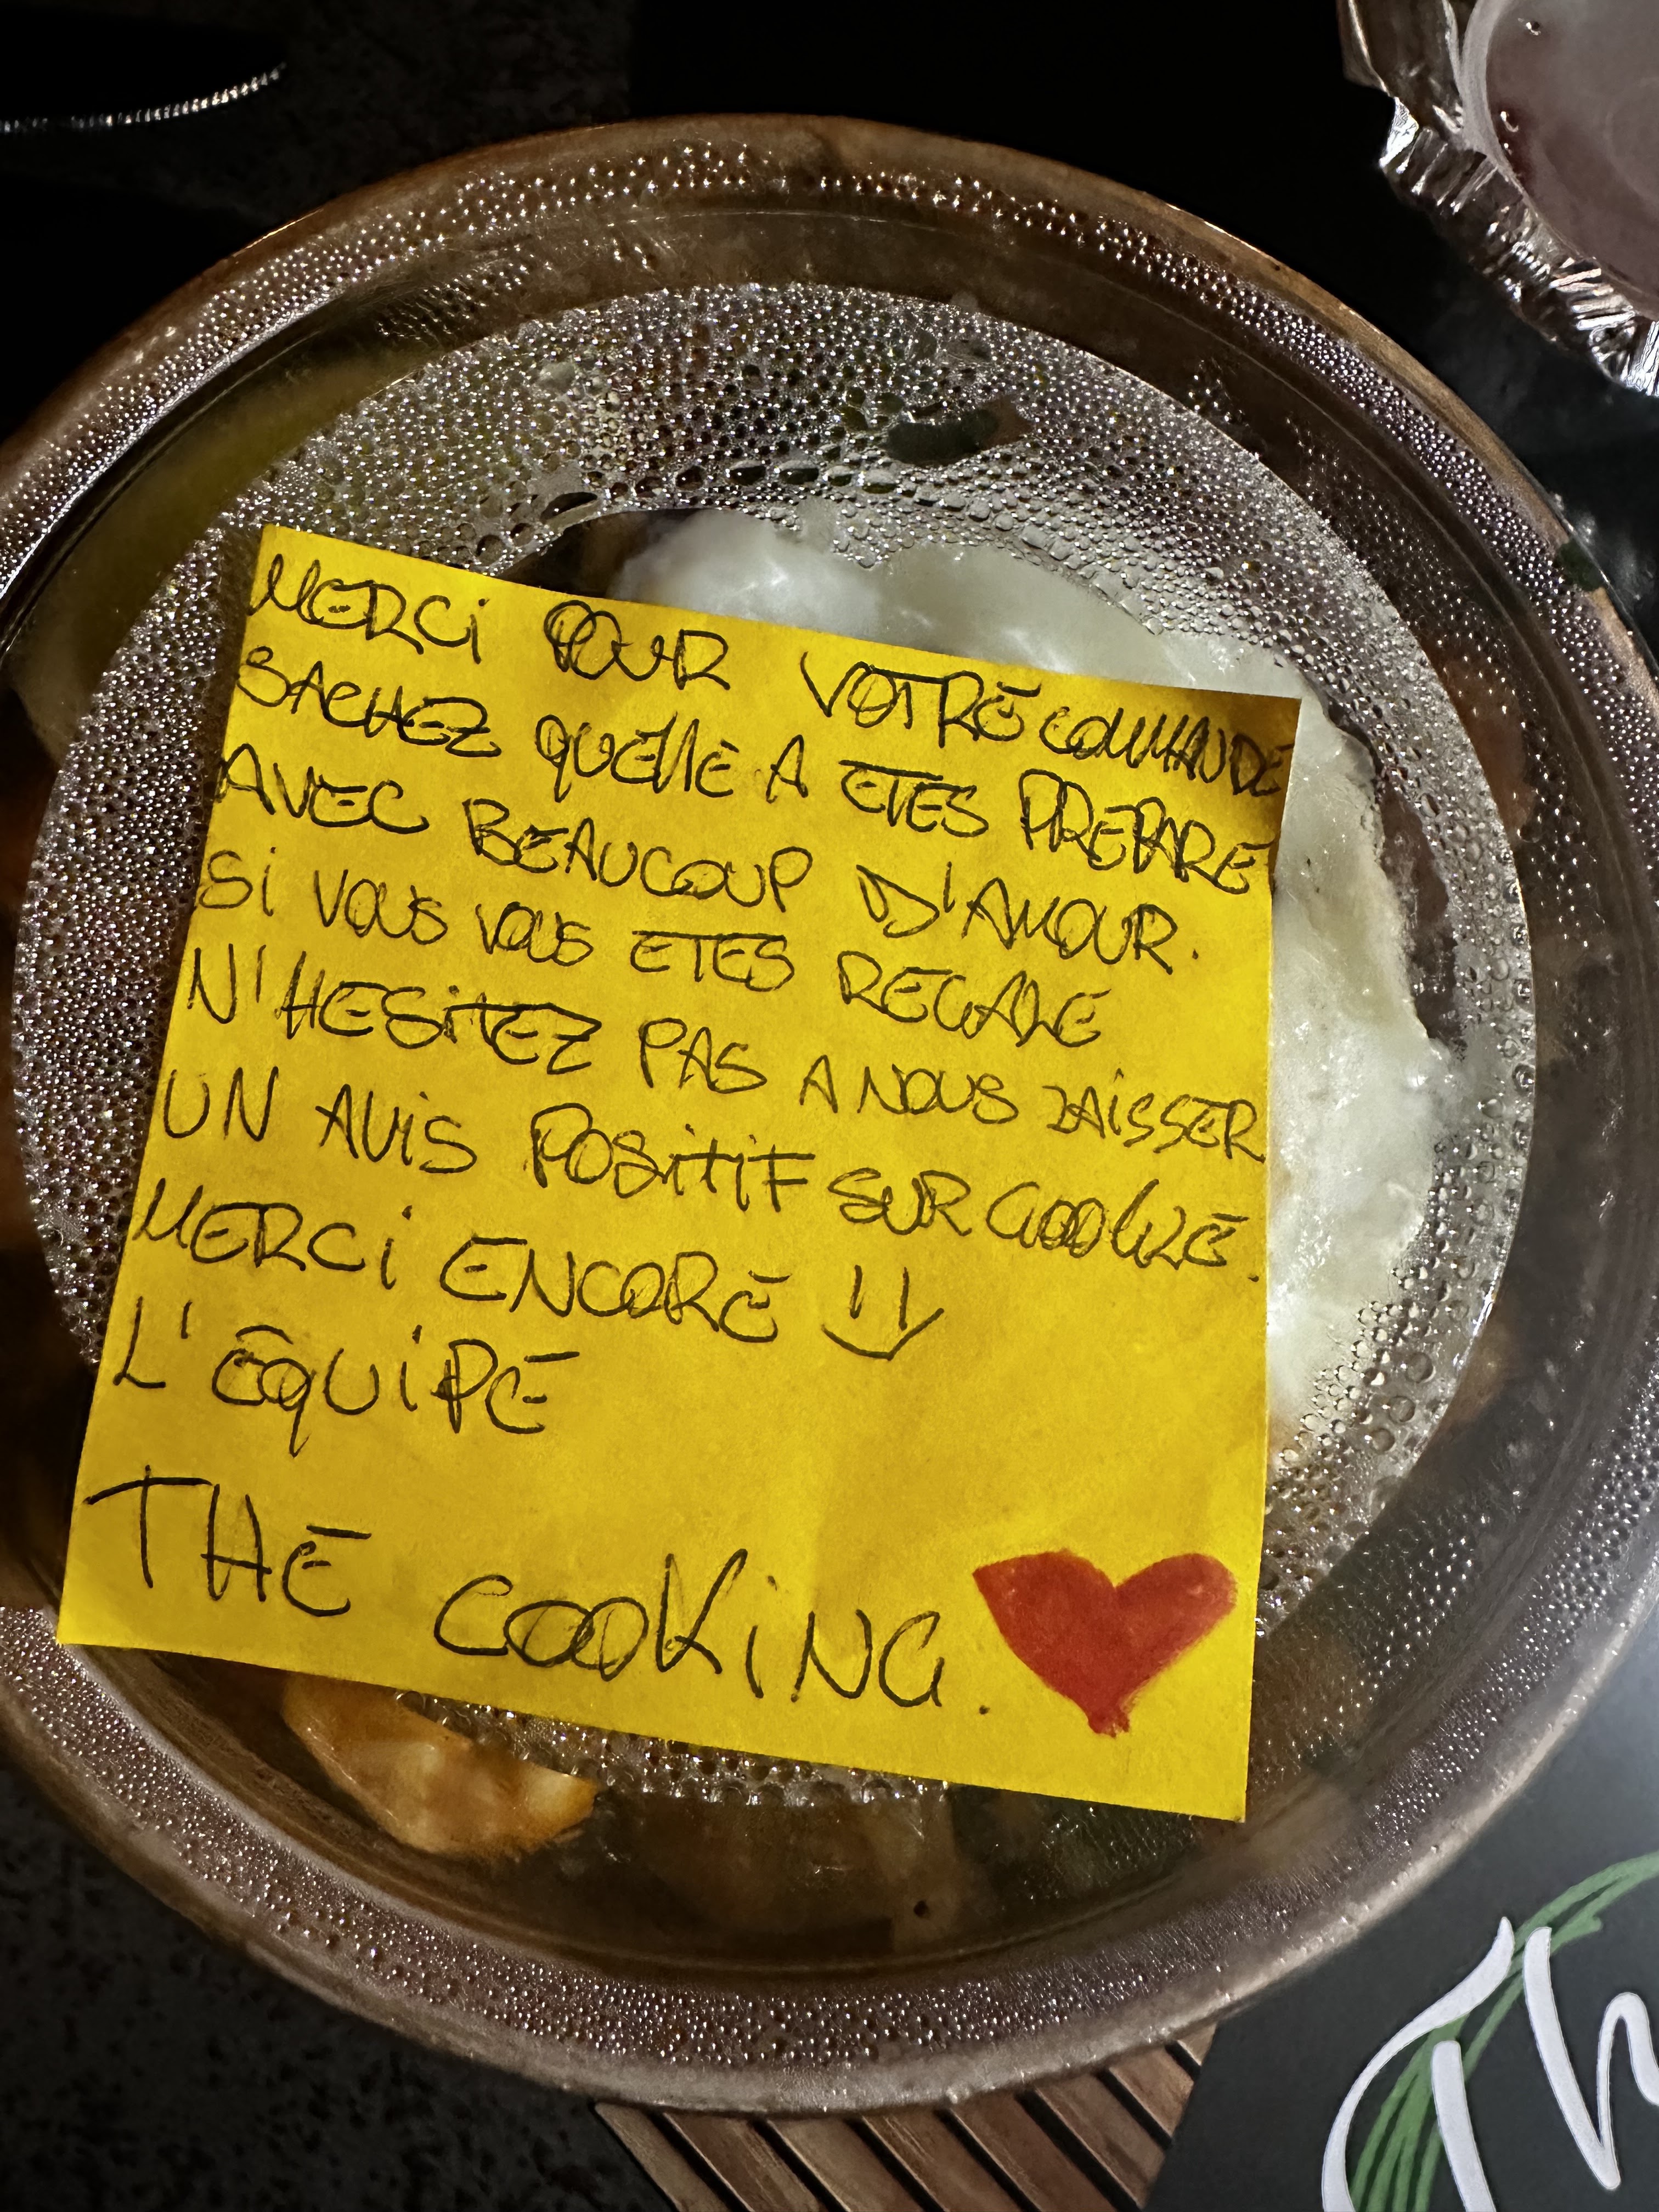 MERCI POUR VOTRE COMMANDE
SACHEZ QUELLE A ETES PREPARE
AVEC BEAUCOUP D'AMOUR.
SI VOUS VOUS ETES REGALE
N'HESITEZ PAS A NOUS LAISSER
UN AVIS POSITIF SUR GOOGLE.
MERCI ENCORE
L'ÉQUIPE
THE COOKING.
Th